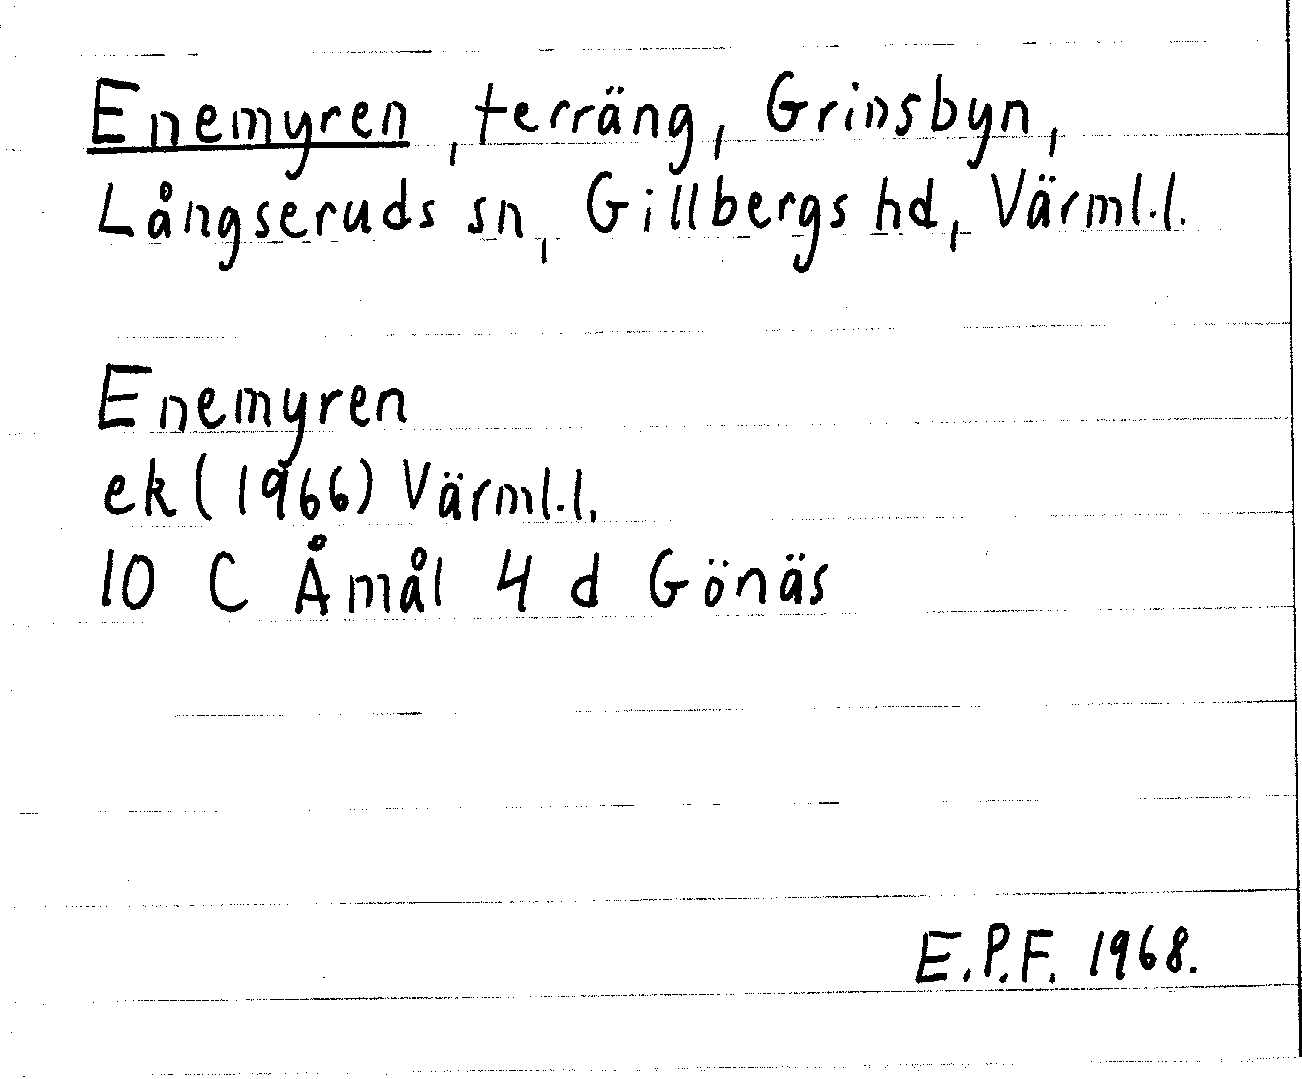 Enemyren, terräng, Grinsbyn,
Långseruds sn, Gillbergs hd, Värml.l.
Enemyren
ek (1966) Värml.l.
10 C Åmål 4 d Gönäs
E.P.F. 1968.